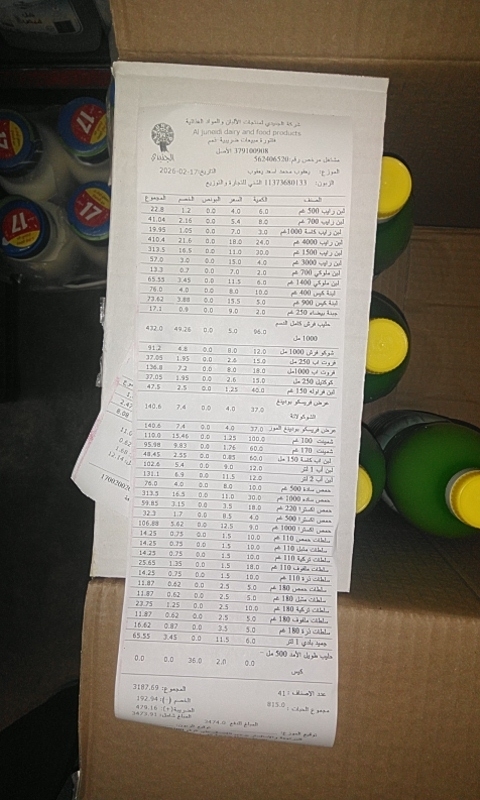 شركة الجنيدي لمنتجات الألبان والمواد الغذائية
Al junedi dairy and food products
فاتورة مبيعات ضريبية
379100908 الأصل
مشتغل مرخص رقم: 562406520
الموزع: يعقوب محمد اسعد يعقوب التاريخ: 2026-02-17
الزبون: 11373680133 للتجارة والتوزيع
الصنف الكمية السعر البونص الخصم المجموع
لبن رايب 500 غم 6.0 4.0 0.0 1.2 22.8
لبن رايب 700 غم 8.0 5.4 0.0 2.16 41.04
لبن رايب كاسة 1000غم 3.0 7.0 0.0 1.05 19.95
لبن رايب 4000 غم 24.0 18.0 0.0 21.6 410.4
لبن رايب 1500 غم 30.0 11.0 0.0 16.5 313.5
لبن رايب 3000 غم 4.0 15.0 0.0 3.0 57.0
لبن ملوكي 700 غم 2.0 7.0 0.0 0.7 13.3
لبن ملوكي 1400 غم 6.0 11.5 0.0 3.45 65.55
لبنة كيس 400 غم 10.0 8.0 0.0 4.0 76.0
لبنة كيس 900 غم 5.0 15.5 0.0 3.88 73.62
جبنة بيضاء 250 غم 2.0 9.0 0.0 0.9 17.1
حليب فرش كامل الدسم 1000 مل 96.0 5.0 0.0 49.26 432.0
شوكو فرش 1000 مل 12.0 8.0 0.0 4.8 91.2
فروت اب 250 مل 15.0 2.6 0.0 1.95 37.05
فروت اب 1000 مل 18.0 8.0 0.0 7.2 136.8
كوكتيل 250 مل 15.0 2.6 0.0 1.95 37.05
لبن فراولة 150 غم 40.0 1.25 0.0 2.5 47.5
عرض فريسكو بودينغ الشوكولاتة 37.0 4.0 0.0 7.4 140.6
عرض فريسكو بودينغ الموز 37.0 4.0 0.0 7.4 140.6
شمينت 100 غم 100.0 1.25 0.0 15.46 110.0
شمينت 170 غم 60.0 1.76 0.0 9.83 95.98
لبن اب كاسة 150 مل 60.0 0.85 0.0 2.55 48.45
لبن أب 1 لتر 12.0 9.0 0.0 5.4 102.6
لبن أب 2 لتر 12.0 11.5 0.0 6.9 131.1
حمص سادة 500 غم 10.0 8.0 0.0 4.0 76.0
حمص سادة 1000 غم 30.0 11.0 0.0 16.5 313.5
حمص اكسترا 220 غم 18.0 3.5 0.0 3.15 59.85
حمص اكسترا 500 غم 4.0 8.5 0.0 1.7 32.3
حمص اكسترا 1000 غم 9.0 12.5 0.0 5.62 106.88
سلطات حمص 110 غم 10.0 1.5 0.0 0.75 14.25
سلطات متبل 110 غم 10.0 1.5 0.0 0.75 14.25
سلطات تركية 110 غم 10.0 1.5 0.0 0.75 14.25
سلطات ملفوف 110 غم 18.0 1.5 0.0 1.35 25.65
سلطات ذرة 110 غم 10.0 1.5 0.0 0.75 14.25
سلطات حمص 180 غم 5.0 2.5 0.0 0.62 11.87
سلطات متبل 180 غم 5.0 2.5 0.0 0.62 11.87
سلطات تركية 180 غم 10.0 2.5 0.0 1.25 23.75
سلطات ملفوف 180 غم 5.0 2.5 0.0 0.62 11.87
سلطات ذرة 180 غم 5.0 3.5 0.0 0.87 16.62
جميد بلدي 1 لتر 6.0 11.5 0.0 3.45 65.55
حليب طويل الأمد 500 مل - كيس 0.0 2.0 36.0 0.0 0.0
عدد الاصناف: 41 المجموع: 3187.69
مجموع الحبات: 815.0 الخصم (-): 192.94
الضريبة(+): 479.16
3473.91
المبلغ للدفع: 3474.0
17
17
17